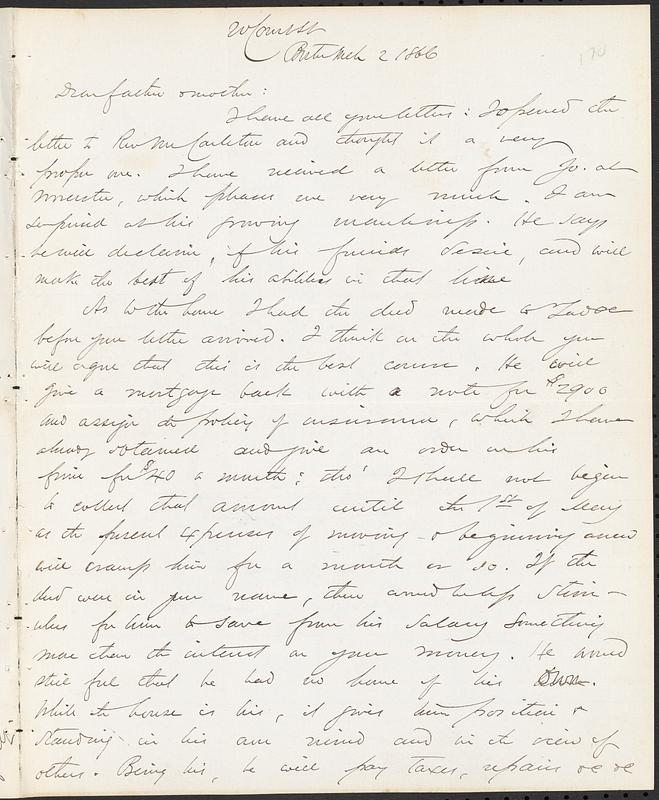 20 Court St
Boston Mch 2 1866
170
Dear father & mother:
I have all your letters: I opened the
letter to Rev Mr Carleton and thought it a very
proper one. I have received a letter from Jo. at
Worcester, which pleases me very much. I am
surprised at his growing manliness. He says
he will declaim, if his friends desire, and will
make the best of his abilities in that line
As to the house I had the deed made to
before your letter arrived. I think on the whole you
will agree that this is the best course. He will
give a mortgage back with a note for $2900
and assign the policy of insurance, which I have
already obtained and give an order on his
firm for $40 a month: tho' I shall not begin
to collect that amount until the 1st of May
as the present expenses of moving & beginning anew
will cramp him for a month or so. If the
deed were in your name, there would be less stim-
ulus for him to save from his salary something
more than the interest on your money. He would
still feel that he had no home of his own.
While the house is his, it gives him position &
standing in his own mind and in the view of
others. Being his, he will pay taxes, repairs &c &c